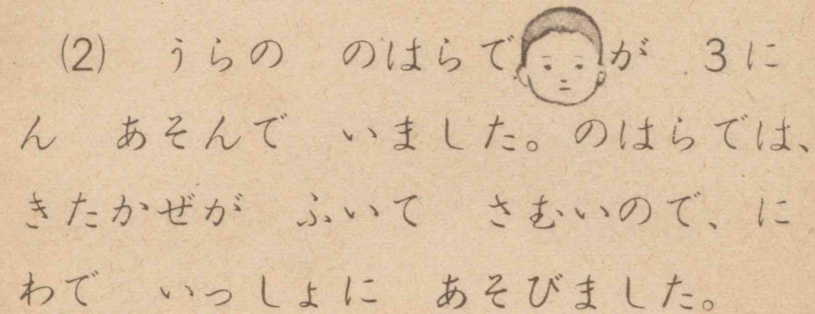 (2) うらの のはらで が 3に
ん あそんで いました。のはらでは、
きたかぜが ふいて さむいので、に
わで いっしょに あそびました。